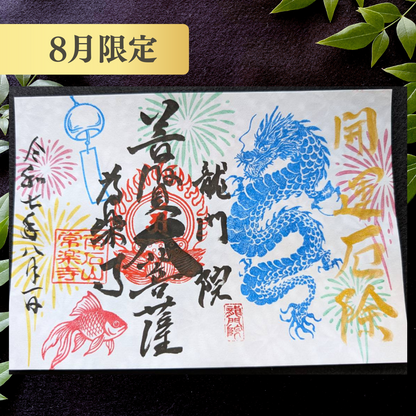 8月限定
開運厄除
龍門院
龍門院
普賢大菩薩
常楽寺
令和七年八月一日